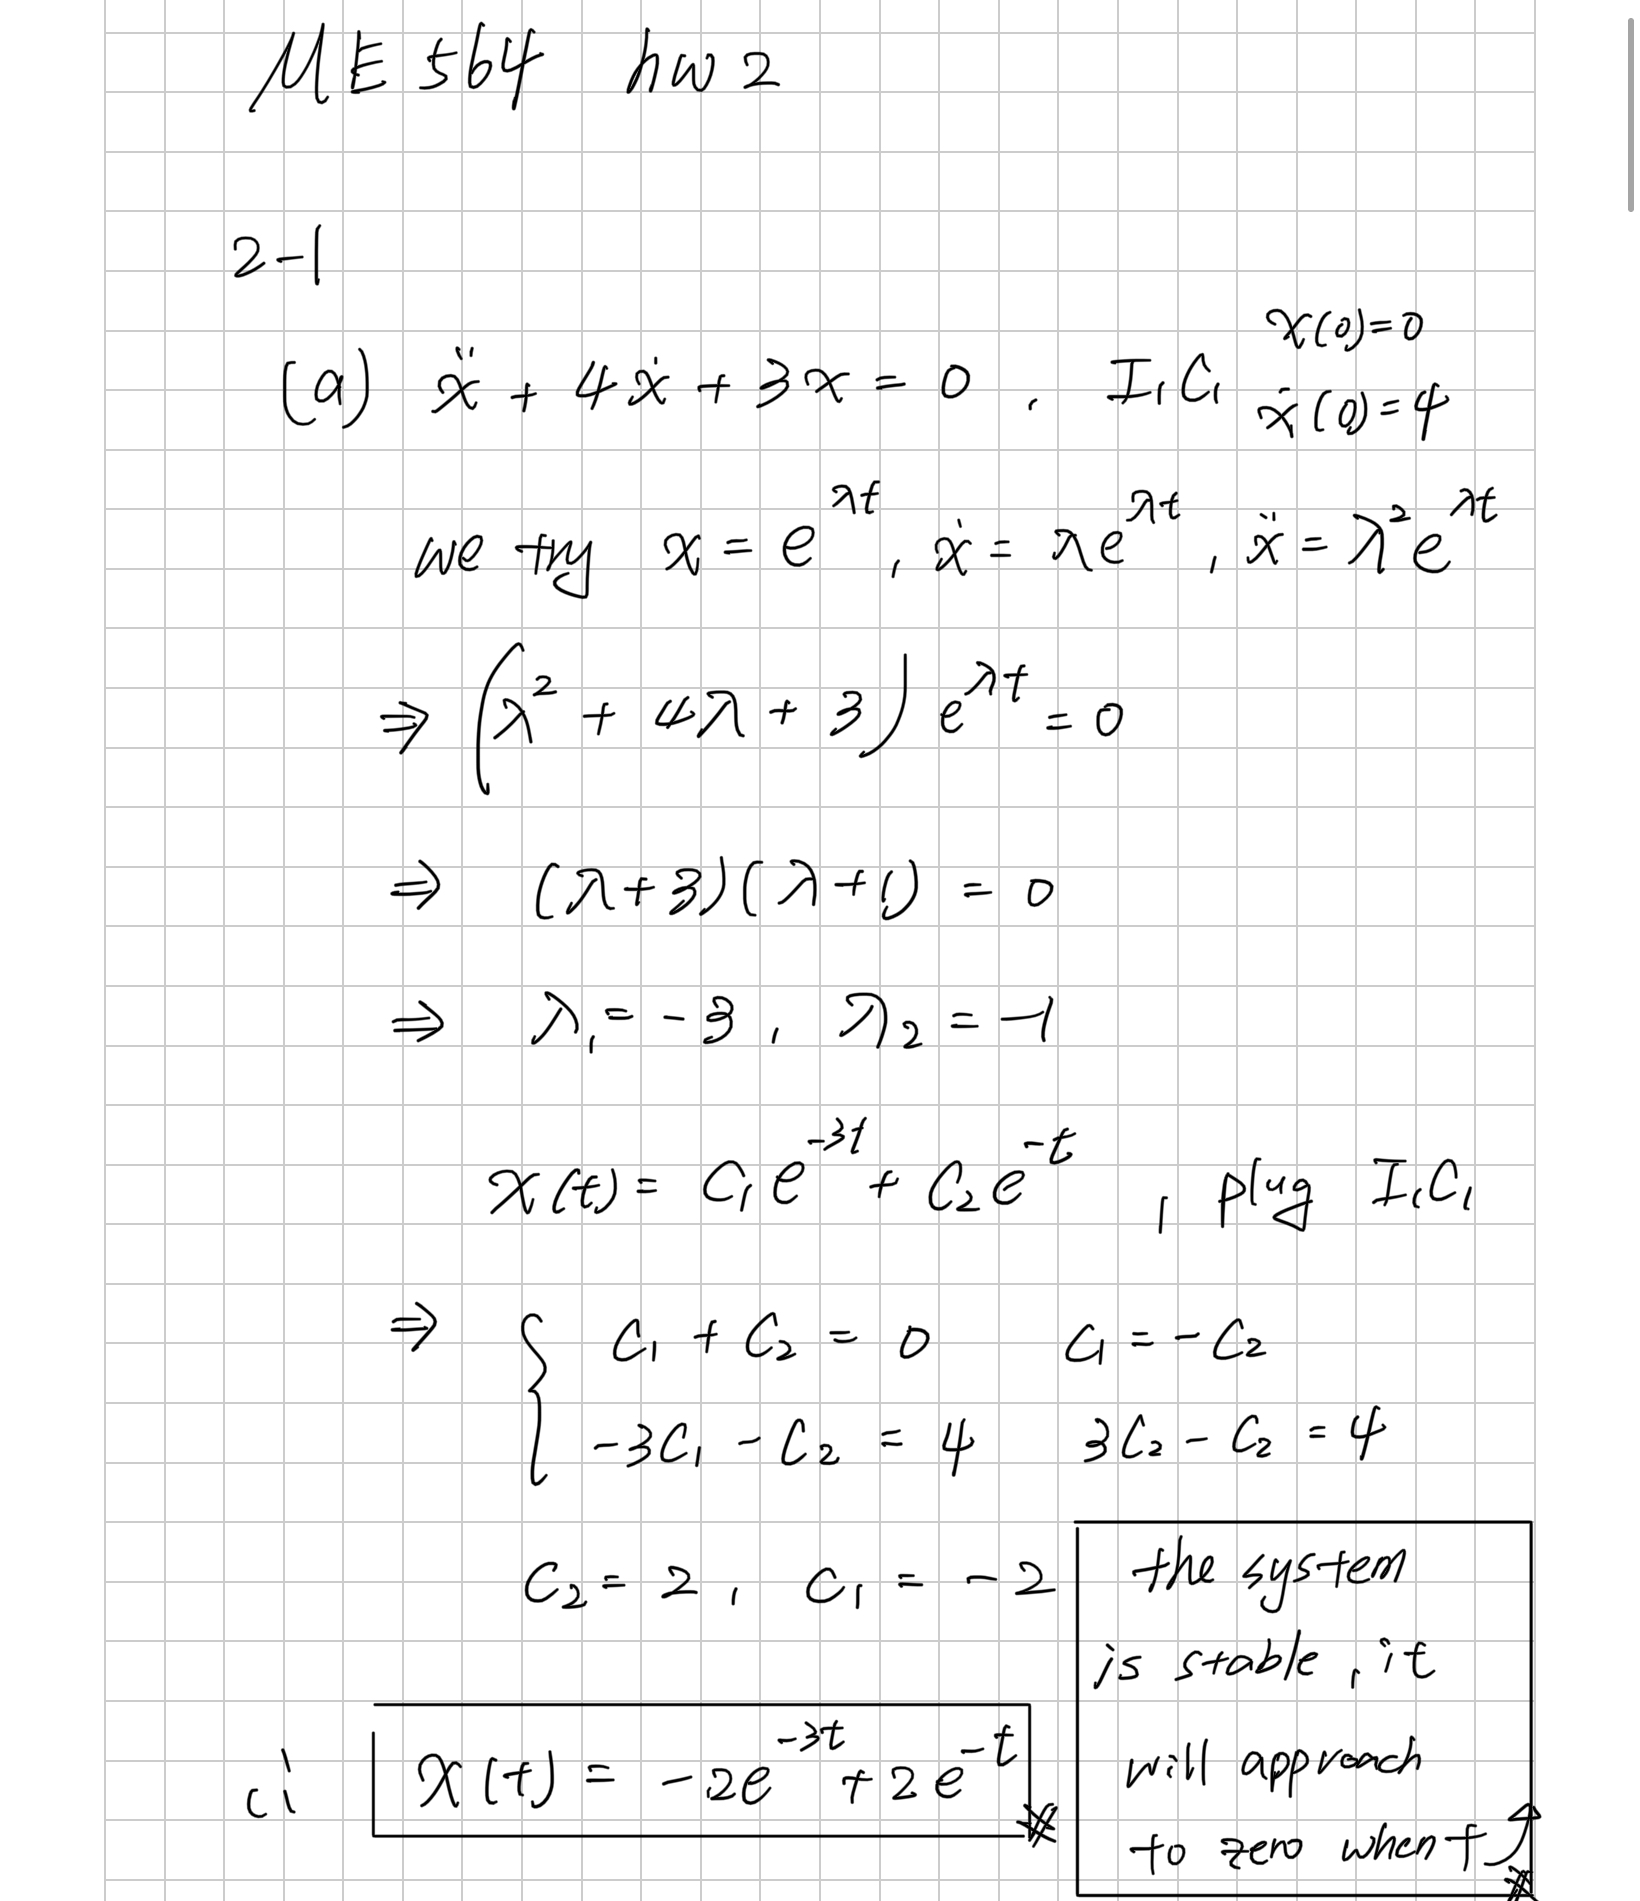 ME 564 hw 2
2-1
(a) ẍ + 4ẋ + 3x = 0 , I.C. x(0)=0
ẋ(0)=4
we try x = e^{λt} , ẋ = λe^{λt} , ẍ = λ²e^{λt}
⇒ (λ² + 4λ + 3) e^{λt} = 0
⇒ (λ+3)(λ+1) = 0
⇒ λ₁ = -3 , λ₂ = -1
x(t) = C₁e^{-3t} + C₂e^{-t} , plug I.C.
⇒ { C₁ + C₂ = 0 C₁ = -C₂
-3C₁ - C₂ = 4 3C₂ - C₂ = 4
C₂ = 2 , C₁ = -2
∴ x(t) = -2e^{-3t} + 2e^{-t} *
the system
is stable , it
will approach
to zero when t ↑ *